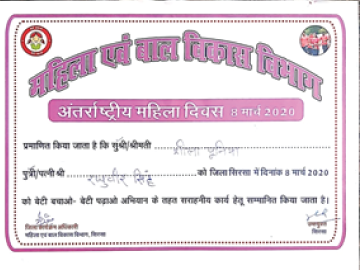 महिला एवं बाल विकास विभाग
अंतर्राष्ट्रीय महिला दिवस 8 मार्च 2020
प्रमाणित किया जाता है कि सुश्री/श्रीमती
पुत्री/पत्नी श्री रघुवीर सिंह को जिला सिरसा में दिनांक 8 मार्च 2020
को बेटी बचाओ- बेटी पढ़ाओ अभियान के तहत सराहनीय कार्य हेतु सम्मानित किया जाता है।
जिला कार्यक्रम अधिकारी
महिला एवं बाल विकास विभाग, सिरसा
उपायुक्त
सिरसा